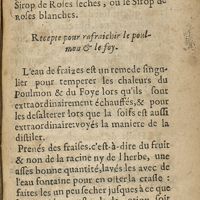 Sirop de Roses seches, ou le Sirop de
roses blanches.
Recepte pour rafraichir le poul-
mon & le foy.
L'eau de fraizes est un remede singu-
lier pour temperer les chaleurs du
Poulmon & du Foye lors qu'ils sont
extraordinairement échauffés, & pour
les desalterer lors que la soifs est aussi
extraordinaire voyés la maniere de la
distiler.
Prenés des fraises c'est-à-dire du fruit
& non de la racine ny de l'herbe, une
asses bonne quantité, lavés les avec de
l'eau fontaine pour en oiter la crasse :
faites les un peu secher jusques à ce que